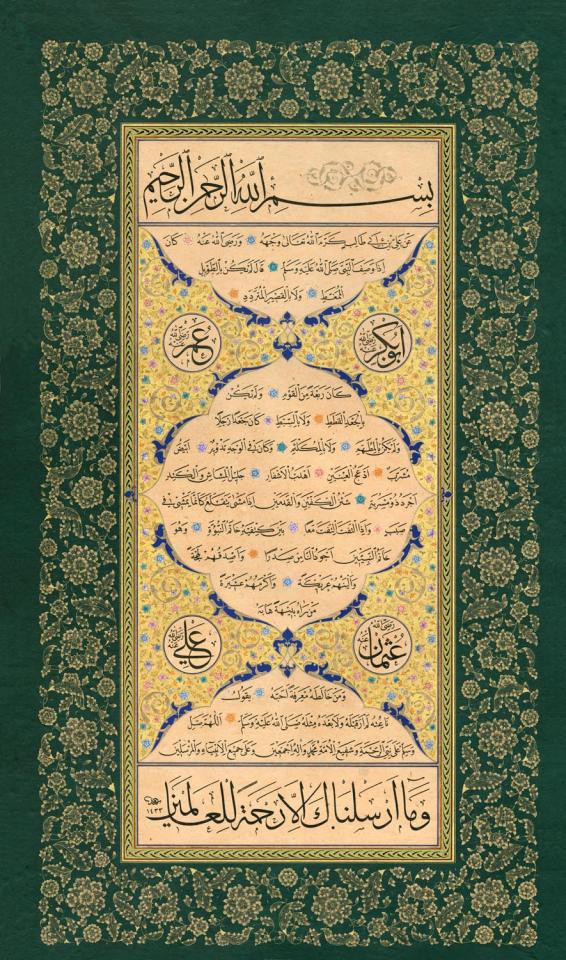 بسم الله الرحمن الرحيم
عن علي بن ابي طالب كرم الله تعالى وجهه ورضي الله عنه كان
اذا وصف النبي صلى الله عليه وسلم قال لم يكن بالطويل
الممغط ولا بالقصير المتردد
ابوبكر رضي الله عنه
عمر رضي الله عنه
كان ربعة من القوم ولم يكن
بالجعد القطط ولا بالسبط كان جعدا رجلا
ولم يكن بالمطهم ولا بالمكلثم وكان في الوجه تدوير ابيض
مشرب ادعج العينين اهدب الاشفار جليل المشاش والكتد
اجرد ذو مسربة شثن الكفين والقدمين اذا مشى يتقلع كانما يمشي في
صبب واذا التفت التفت معا بين كتفيه خاتم النبوة وهو
خاتم النبيين اجود الناس صدرا واصدقهم لهجة
والينهم عريكة واكرمهم عشيرة
من راه بديهة هابه
عثمان رضي الله عنه
علي رضي الله عنه
ومن خالطه معرفة احبه يقول
ناعته لم ار قبله ولا بعده مثله صلى الله عليه وسلم اللهم صل
وسلم على نبي الرحمة وشفيع الامة محمد واله اجمعين وعلى جميع الانبياء والمرسلين
وما ارسلناك الا رحمة للعالمين
١٤٣٣